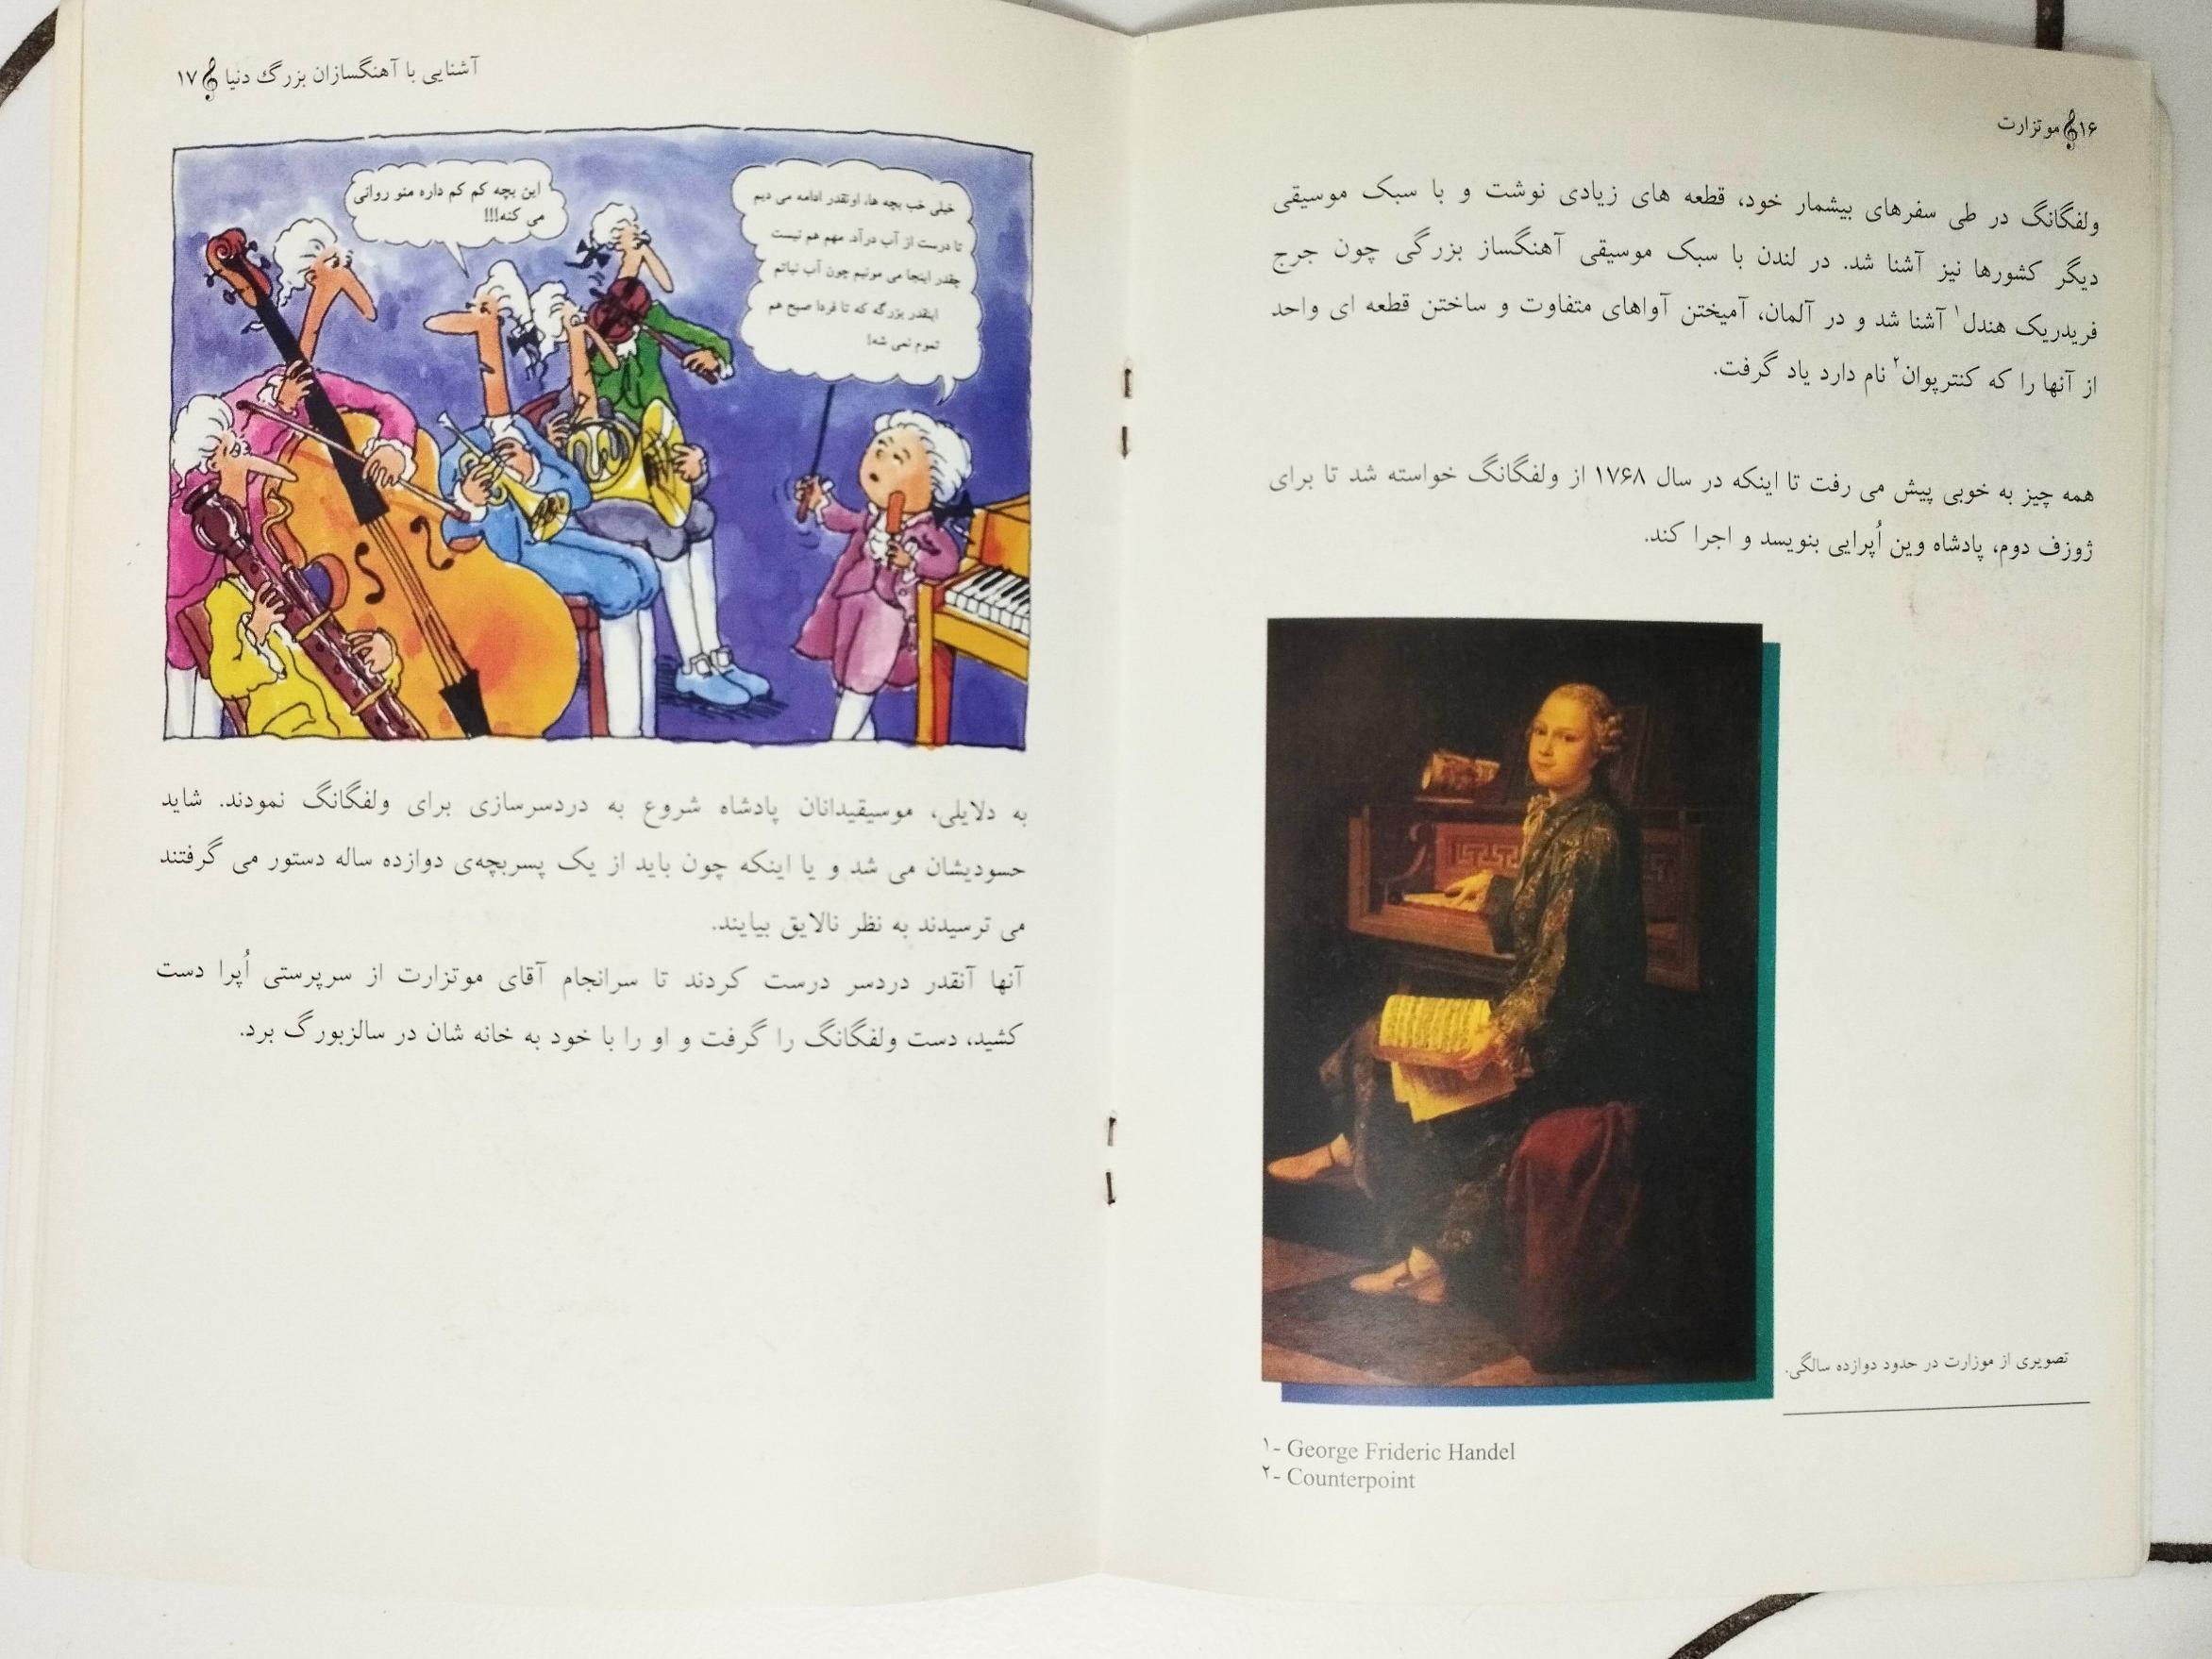 ۱۶ موتزارت
ولفگانگ در طی سفرهای بیشمار خود، قطعه های زیادی نوشت و با سبک موسیقی
دیگر کشورها نیز آشنا شد. در لندن با سبک موسیقی آهنگساز بزرگی چون جرج
فریدریک هندل۱ آشنا شد و در آلمان، آمیختن آواهای متفاوت و ساختن قطعه ای واحد
از آنها را که کنترپوان۲ نام دارد یاد گرفت.
همه چیز به خوبی پیش می رفت تا اینکه در سال ۱۷۶۸ از ولفگانگ خواسته شد تا برای
ژوزف دوم، پادشاه وین اُپرایی بنویسد و اجرا کند.
تصویری از موزارت در حدود دوازده سالگی.
۱- George Frideric Handel
۲- Counterpoint
آشنایی با آهنگسازان بزرگ دنیا ۱۷
خیلی خب بچه ها، اونقدر ادامه می دیم
تا درست از آب درآد. مهم هم نیست
چقدر اینجا می مونیم چون آب نباتم
اینقدر بزرگه که تا فردا صبح هم
تموم نمی شه!
این بچه کم کم داره منو روانی
می کنه!!!
به دلایلی، موسیقیدانان پادشاه شروع به دردسرسازی برای ولفگانگ نمودند. شاید
حسودیشان می شد و یا اینکه چون باید از یک پسربچه‌ی دوازده ساله دستور می گرفتند
می ترسیدند به نظر نالایق بیایند.
آنها آنقدر دردسر درست کردند تا سرانجام آقای موتزارت از سرپرستی اُپرا دست
کشید، دست ولفگانگ را گرفت و او را با خود به خانه شان در سالزبورگ برد.